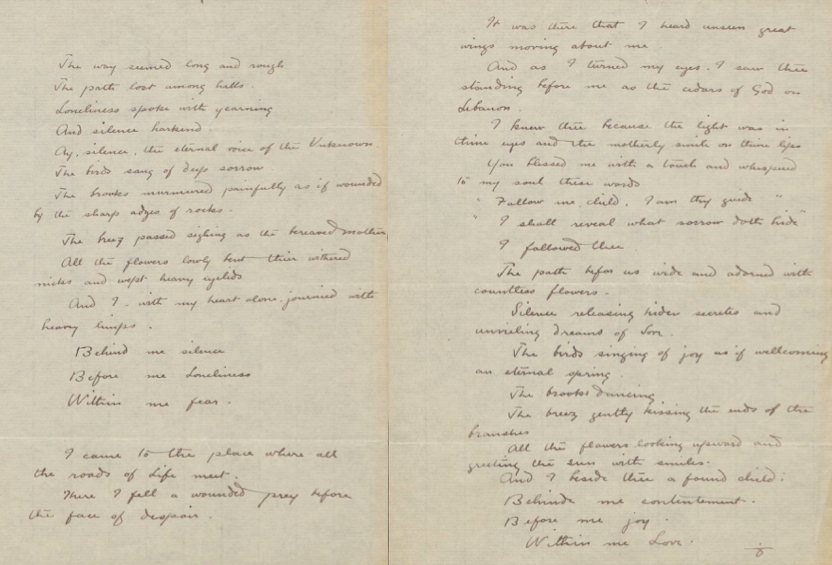 The way seemed long and rough
The path lost among hills.
Loneliness spoke with yearning
And silence harkend.
Ay, silence, the eternal voice of the Unknown.
The birds sang of deep sorrow
The brooks murmured painfully as if wounded
by the sharp adges of rocks.
The breez passed sighing as the bereaved mother
All the flowers lowly bent their withered
necks and wept heavy eyelids
And I - with my heart alone, journied with
heavy limps.
Behind me silence
Before me Loneliness
Within me fear.
I came to the place where all
the roads of Life meet.
There I fell a wounded prey before
the face of despair.
It was there that I heard unseen great
wings moving about me.
And as I turned my eyes, I saw thee
standing before me as the cidars of God on
Lebanon.
I knew thee because the light was in
thine eyes and the motherly smile on thine lips
You blessed me with a touch and whispered
to my soul these words
"Follow me, child, I am thy guide"
"I shall reveal what sorrow doth hide"
I followed thee.
The path befor us wide and adorned with
countless flowers.
Silence releasing hiden secretes and
unveiling dreams of Love.
The birds singing of joy as if wellcoming
an eternal spring.
The brooks dancing.
The breez gently kissing the ends of the
branshes
All the flowers looking upward and
greeting the sun with smiles.
And I beside thee a found child.
Behinde me contentement.
Before me joy.
Within me Love.